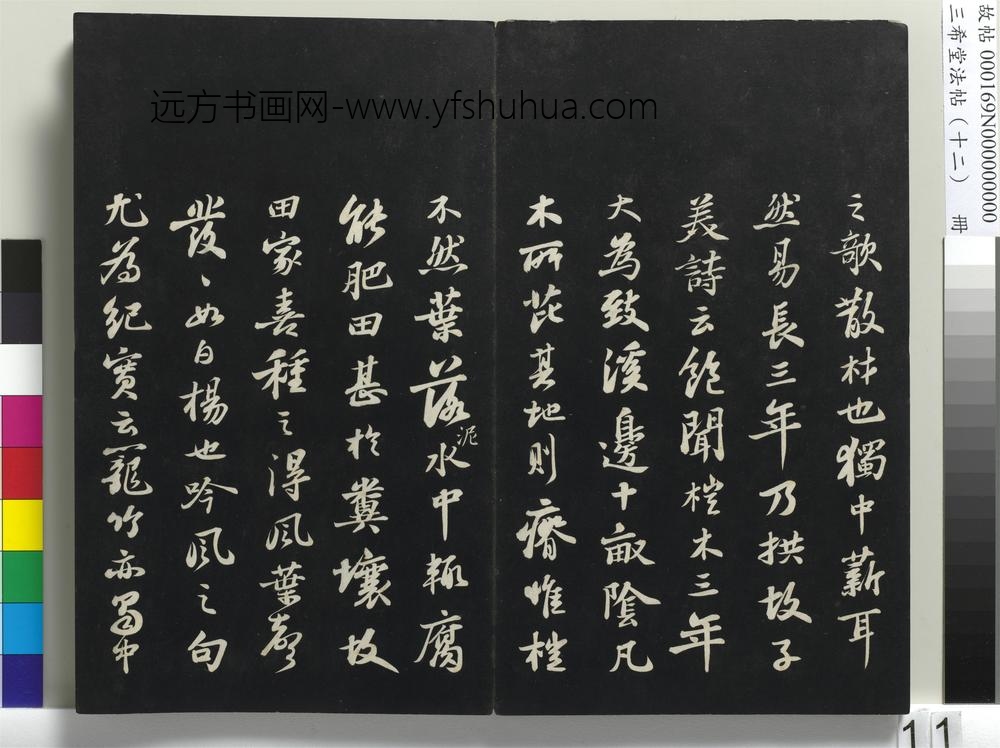 之歌散材也獨中薪耳
然易長三年乃拱故子
美詩云飽聞榿木三年
大為致溪邊十畝陰凡
木所芘其地則瘠惟榿
不然葉落泥水中輒腐
能肥田甚於糞壤故
田家喜種之得風葉聲
發〻如白楊也吟風之句
尤為紀實云籠竹亦蜀中
远方书画网-www.yfshuhua.com
故帖 000169N000000000
三希堂法帖（十二） 冊
11